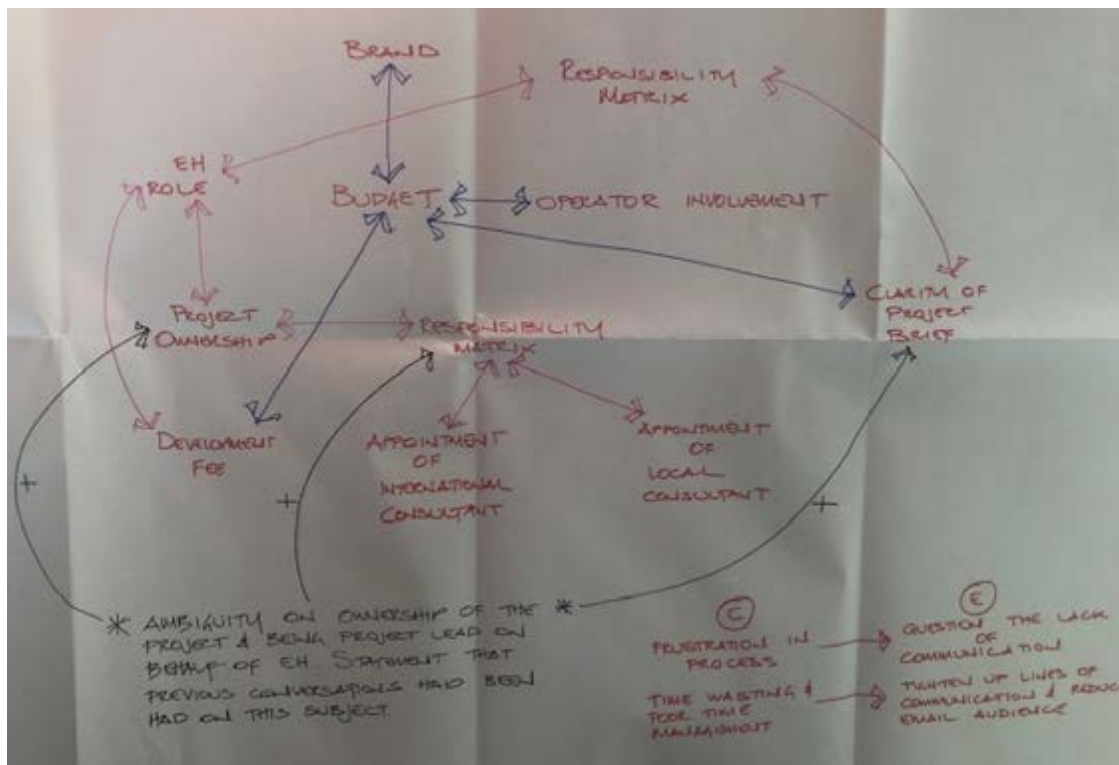 BRAND
RESPONSIBILITY
MATRIX
EH
ROLE
BUDGET
OPERATOR INVOLVEMENT
PROJECT
OWNERSHIP
RESPONSIBILITY
MATRIX
CLARITY OF
PROJECT
BRIEF
DEVELOPMENT
FEE
APPOINTMENT
OF
INTERNATIONAL
CONSULTANT
APPOINTMENT
OF
LOCAL
CONSULTANT
+
+
+
* AMBIGUITY ON OWNERSHIP OF THE *
PROJECT & BEING PROJECT LEAD ON
BEHALF OF EH. STATEMENT THAT
PREVIOUS CONVERSATIONS HAD BEEN
HAD ON THIS SUBJECT.
C
E
FRUSTRATION IN
PROCESS
QUESTION THE LACK
OF
COMMUNICATION
TIME WASTING &
POOR TIME
MANAGMENT
TIGHTEN UP LINES OF
COMMUNICATION & REDUCE
EMAIL AUDIENCE